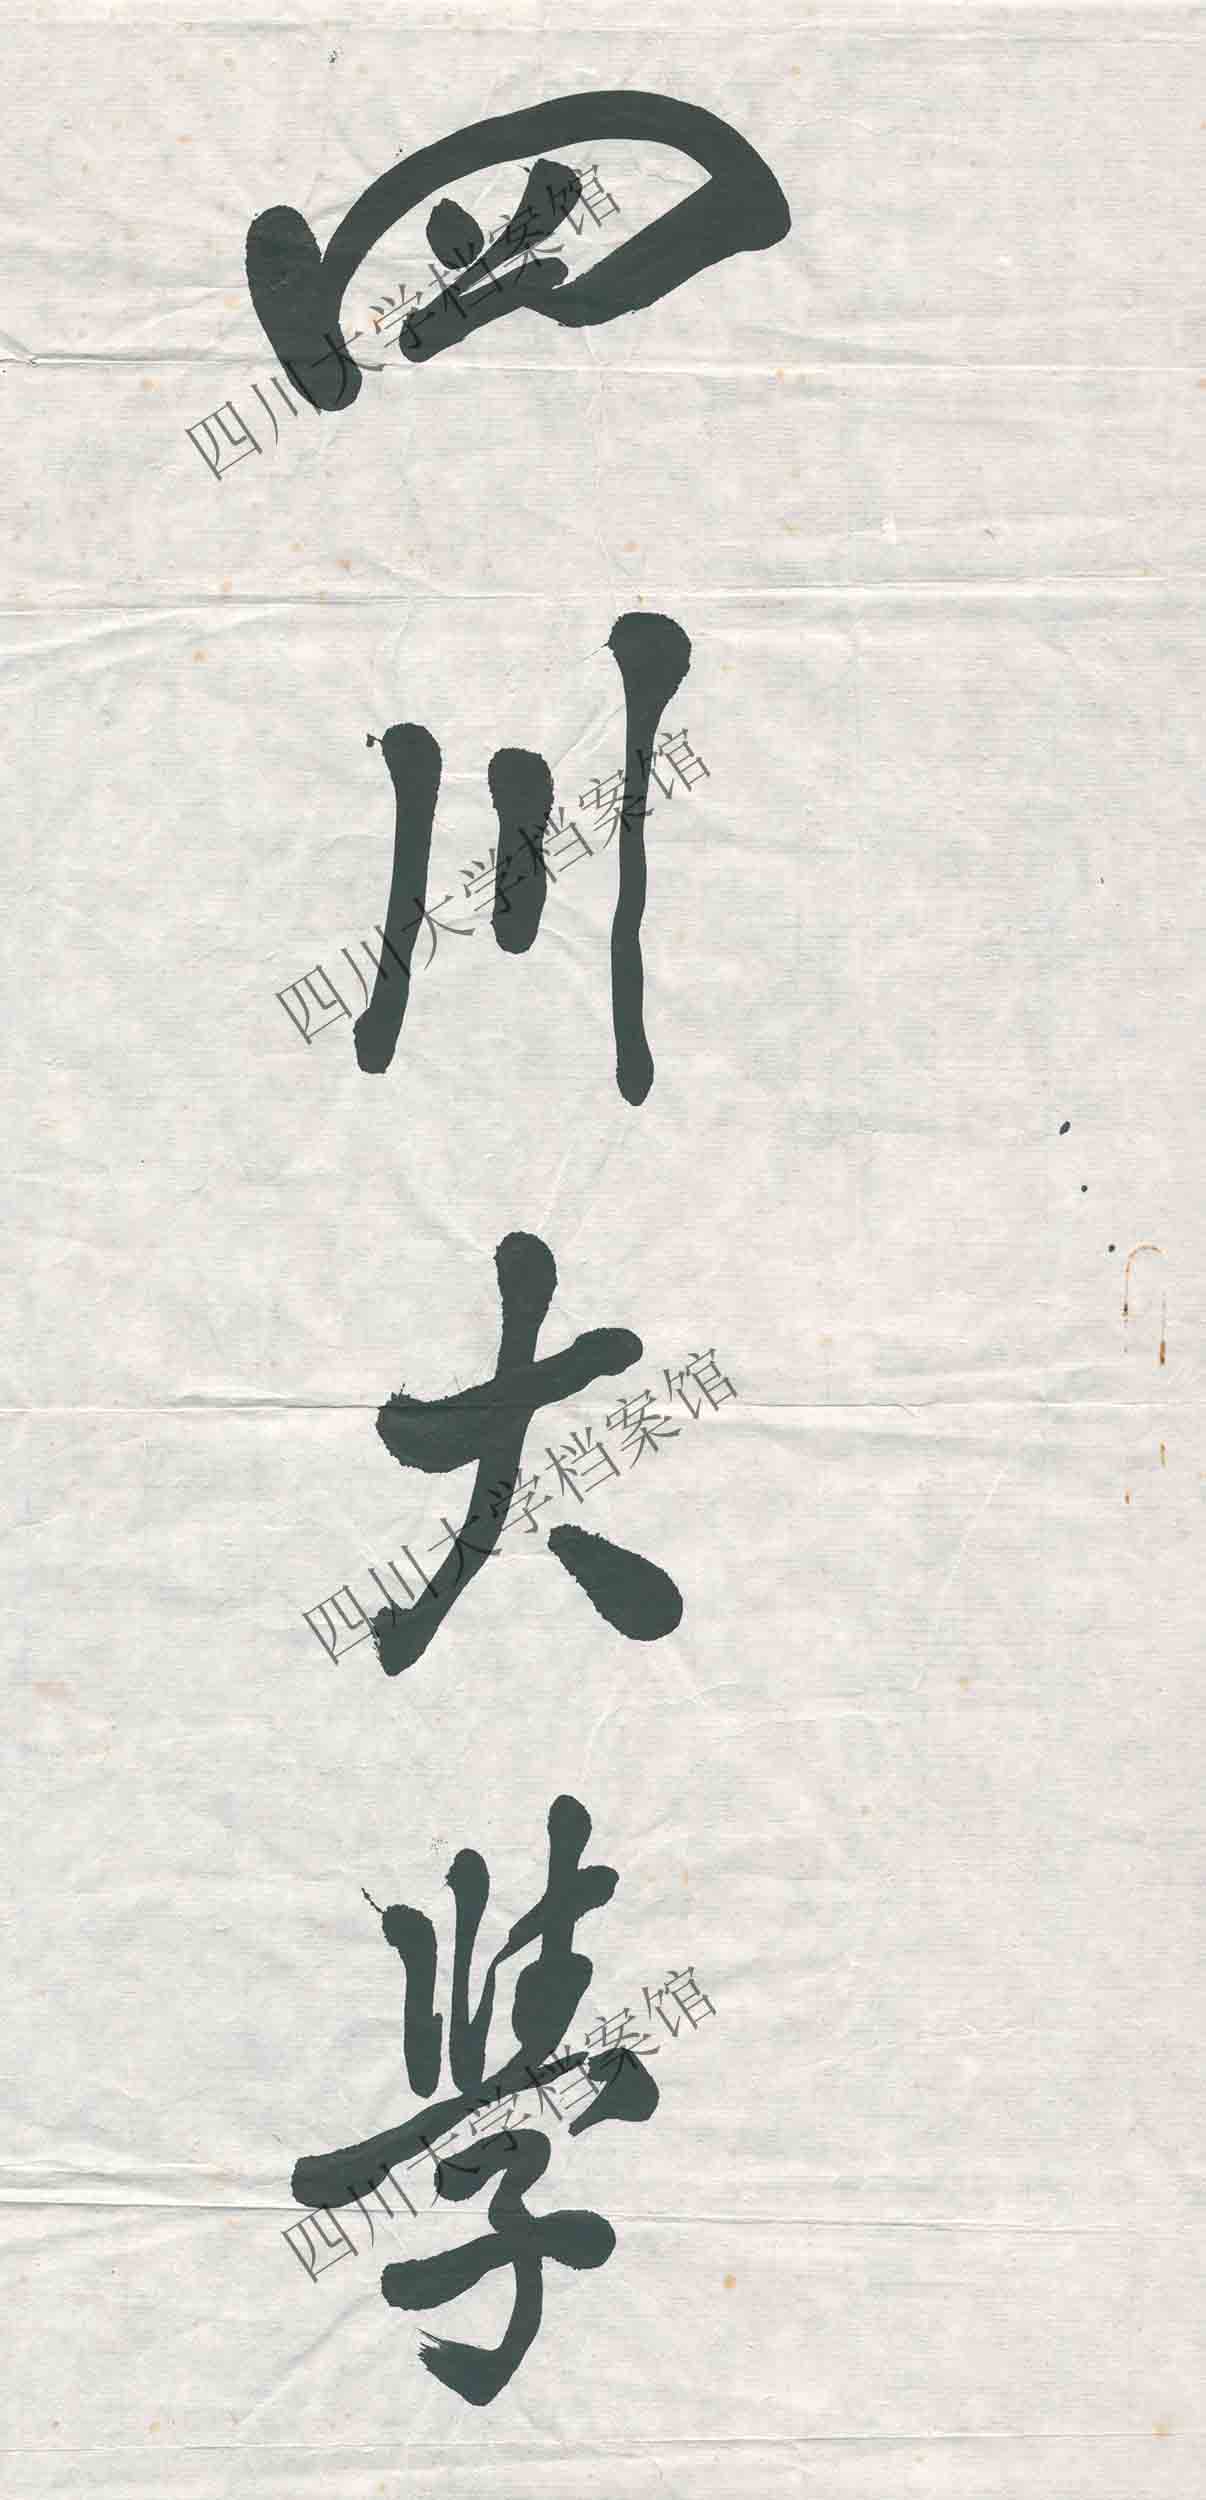 四川大學
四川大学档案馆
四川大学档案馆
四川大学档案馆
四川大学档案馆